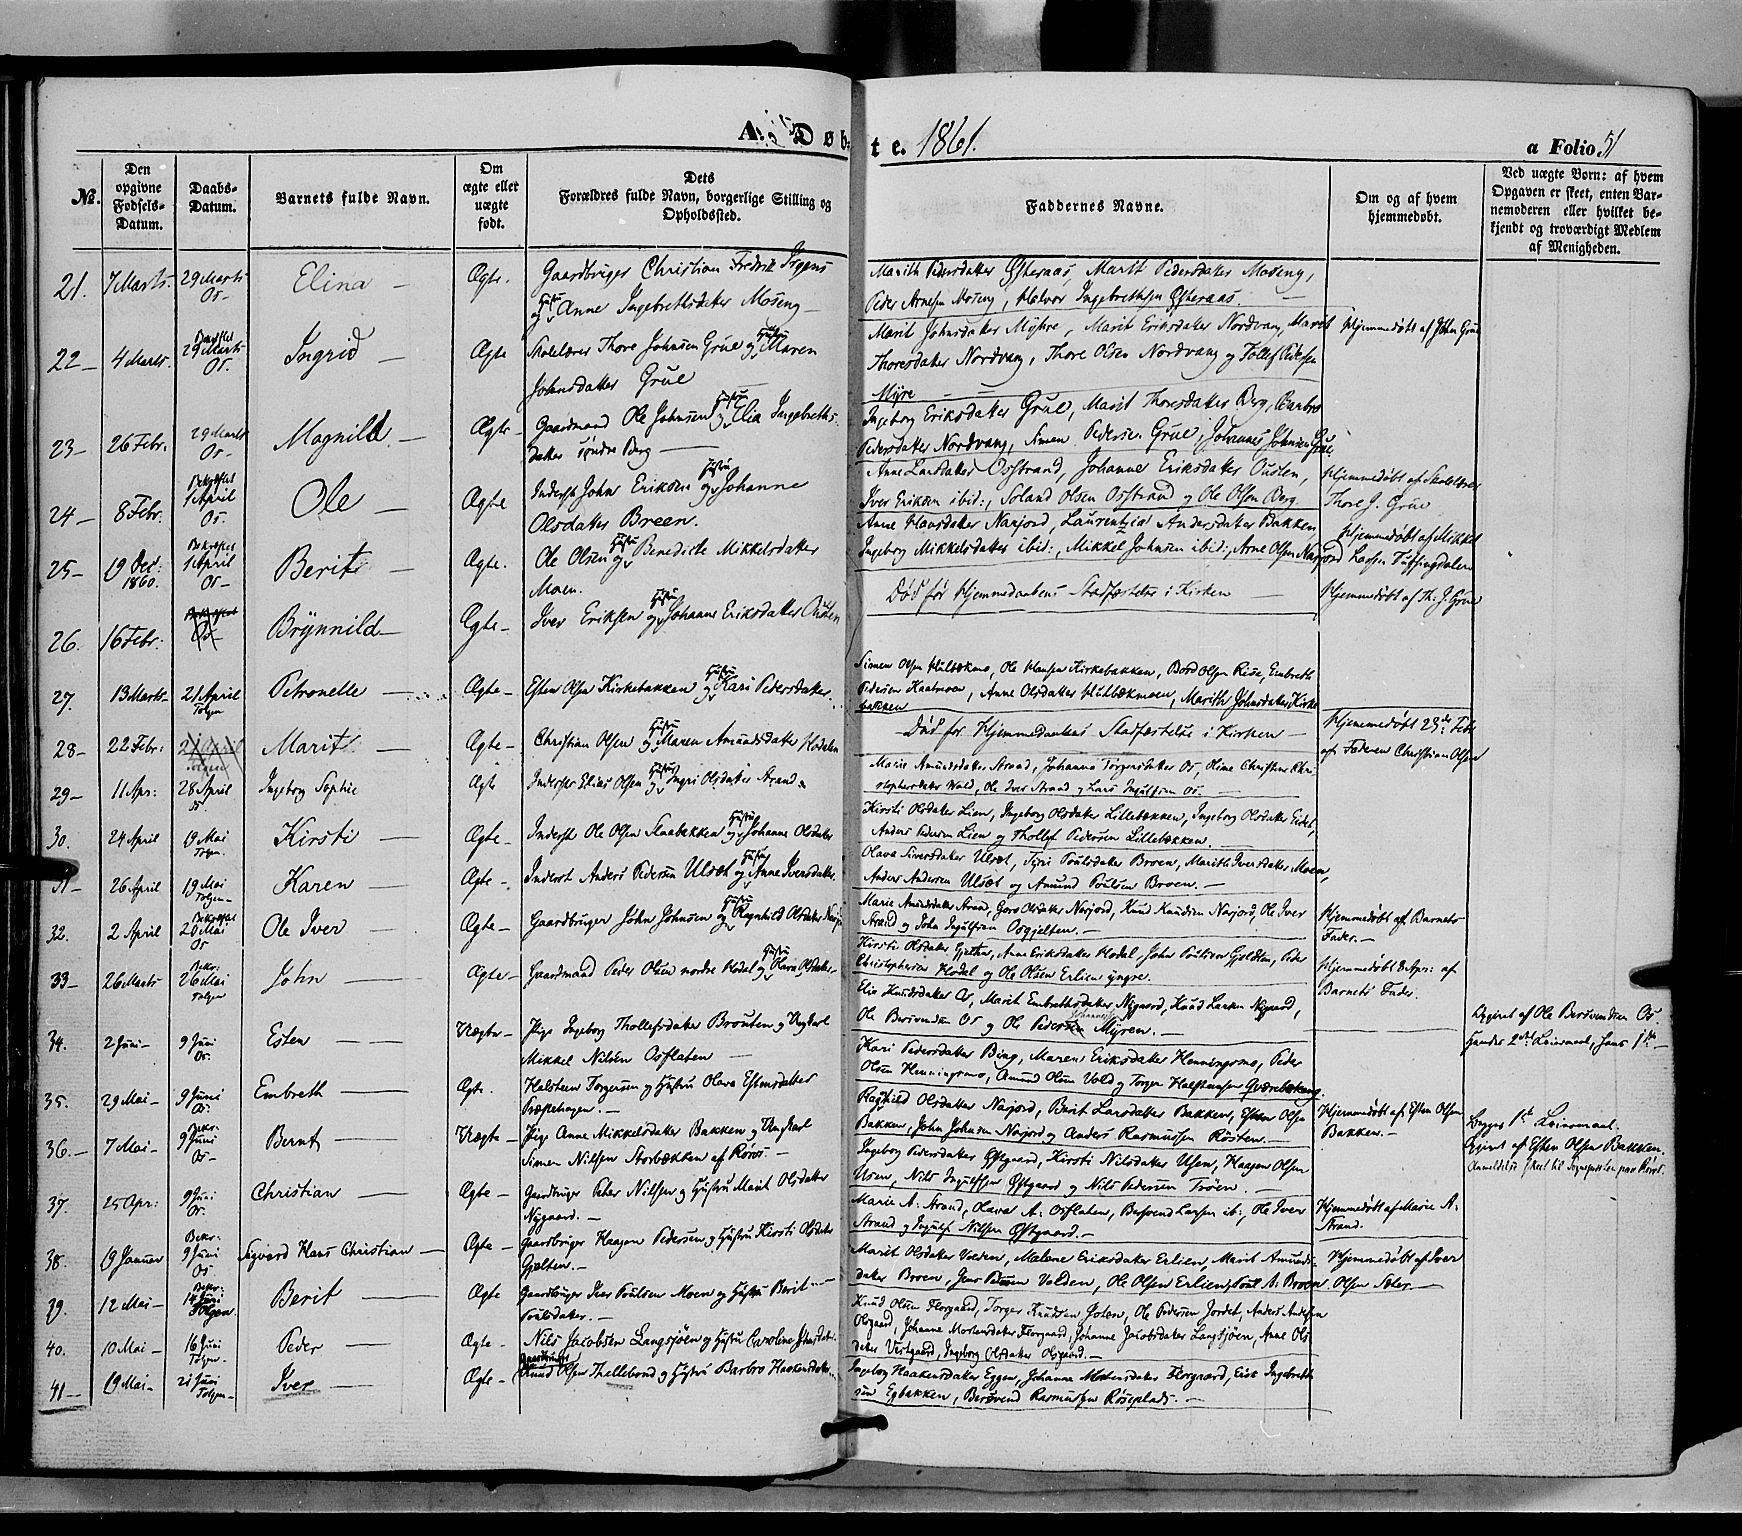 A. Døbte. 1861.
a Folio 51
№.
Den opgivne Fødsels-Datum.
Daabs-Datum.
Barnets fulde Navn.
Om ægte eller uægte født.
Dets Forældres fulde Navn, borgerlige Stilling og Opholdssted.
Faddernes Navne.
Om og af hvem hjemmedøbt.
Ved uægte Børn: af hvem Opgaven er skeet, enten Barnemoderen eller hvilket bekjendt og troværdigt Medlem af Menigheden.
21. 7 Marts. 29 Marts Os- Elina — Ægte. Gaardbruger Christian Fredrik
og Hustru Anne Ingebrethsdatter Moseng —
Marith Pedersdatter Østeraas, Marit Pedersdatter Moseng,
Peder Arnesen Moseng, Halvor Ingebrethsen Østeraas. —
22 — 4 Marts. 29 Marts Os. Ingrid — Ægte Skolelærer Thore Johnsen Grue og Hustru Maren
Johnsdatter Grue —
Marit Johnsdatter Myhre, Marit Eriksdatter Nordvang, Marit
Thoresdatter Nordvang, Thore Olsen Nordvang og Tollef Pedersen
Myre — —
Hjemmedøbt af John Grue
23 — 26 Febr. 29 Marts Os — Magnild — Ægte — Gaardmand Ole Johnsen og Hustru Elia Ingebreths-
datter søndre Berg —
Ingeborg Eriksdatter Grue, Marit Thoresdatter Berg,
Pedersdatter Nordvang, Simen Pedersen Grue, Johannes Johnsen Grue
24 — 8 Febr. 1 April Os. Ole — Ægte Inderst John Eriksen og Hustru Johanne
Olsdatter Breen.
Anne Larsdatter Osstrand, Johanne Eriksdatter Ousten,
Iver Eriksen ibid:, Olsen Osstrand og Ole Olsen Berg.
Hjemmedøbt af Skolelærer
Thore J. Grue
25 — 19 Dec: 1860. 1 April Os — Berit — Ægte. Ole Olsen og Hustru Benedicte Mikkelsdatter
Moen.
Anne Hansdatter Narjord, Laurentzia Andersdatter Bakken,
Ingeborg Mikkelsdatter ibid:, Mikkel Johnsen ibid:, Arne Olsen Narjord
Hjemmedøbt af Mikkel
26. 16 Febr: Brynnild — Ægte — Iver Eriksen og Hustru Johanne Eriksdatter Ousten
Død før Hjemmedaabens Stadfæstelse i Kirken —
Hjemmedøbt af Th: J. Grue
27. 13 Marts — 21 April Tolgen Petronelle — Ægte — Esten Olsen Kirkebakken og Hustru Kari Pedersdatter
Simen Olsen Hulbækmo, Ole Hansen Kirkebakken, Bård Olsen Riise, Embreth
Pedersen, Anne Olsdatter Hulbækmoen, Marith Johnsdatter Kirke
bakken
28 — 22 Febr: Marit — Ægte — Christian Olsen og Hustru Maren Amundsdatter Hodalen
— Død før Hjemmedaabens Stadfæstelse i Kirken —
Hjemmedøbt 23de Febr
af Faderen Christian Olsen
29 — 11 Apr: 28 April Os Ingeborg Sophie Ægte Inderst Elias Olsen og Hustru Ingri Olsdatter Strand.
Marie Amundsdatter Strand, Johanna Torgersdatter Os, Oline Christine Chri-
stophersdatter Wold, Ole Iver Strand og Lars Ingulfsen Os. —
30. 24 April 19 Mai Tolgen Kirsti — Ægte — Inderst Ole Olsen og Hustru Johanne Olsdatter
Kirsti Olsdatter Lien, Ingeborg Olsdatter Lillebækken, Ingeborg Olsdatter
Anders Pedersen Lien og Thollef Pedersen Lillebækken. —
31 — 26 April 19 Mai Tolgen — Karen — Ægte — Inderst Anders Pedersen Ulsæt og Hustru Anne Iversdatter
Olava Siversdatter Ulsæt, Poulsdatter Broen, Marith Iversdatter Moen,
Anders Andersen Ulsæt og Amund Poulsen Broen. —
32. 2 April 20 Mai Os Ole Iver — Ægte — Gaardbruger John Johnsen og Hustru Ragnhild Olsdatter
Marie Amundsdatter Strand, Goro Olsdatter Narjord, Knud Knudsen Narjord, Ole Iver
Strand og John Ingulfsen Osgjelten. —
Hjemmedøbt af Barnets
Fader. —
33 — 26 Marts Bekr: 26 Mai Tolgen John — Ægte — Gaardmand Peder Olsen nordre Hodal og Hustru Olava Olsdatter.
Kirsti Olsdatter, Anne Eriksdatter Hodal, John Poulsen, Peder
Christophersen Hodal og Ole Olsen Erlien yngre.
Hjemmedøbt 8 Apr: af
Barnets Fader.
34. 2 Juni — 9 Juni Os. Esten — Uægte — Pige Ingeborg Thollefsdatter Brouten og Ungkarl
Mikkel Nilsen Osflaten —
Elie Knudsdatter Os, Marit Embrethsdatter Nygaard, Knud Larsen Nygaard,
Ole Bersvendsen Os og Ole Pedersen Myren. —
Opgivet af Ole Bersvendsen Os.
Hendes 2det Leiermaal, hans 1ste —
35. 29 Mai — 9 Juni Os. Embreth — Ægte. Halsteen Torgersen og Hustru Olava Estensdatter
Præstehagen. —
Kari Pedersdatter Bing, Maren Eriksdatter Henningsmo, Peder
Olsen Henningsmo, Amund Olsen Vold og Torger Halsteensen
36 — 7 Mai — Bekr: 9 Juni Os — Bernt — Uægte — Pige Anne Mikkelsdatter Bakken og Ungkarl
Simen Nilsen Storbækken af Røros —
Ragnhild Olsdatter Narjord, Berit Larsdatter Bakken, Esten Olsen
Bakken, John Johnsen Narjord og Anders Rasmussen Røsten. —
Hjemmedøbt af Esten Olsen
Bakken. —
Begges 1ste Leiermaal.
Opgivet af Esten Olsen Bakken.
37. 25 Apr: 9 Juni Os. Christian — Ægte — Gaardbruger Peter Nilsen og Hustru Marit Olsdatter
Nygaard. —
Ingeborg Pedersdatter Østgaard, Kirsti Nilsdatter Usen, Haagen Olsen
Usen, Nils Ingulfsen Østgaard og Nils Pedersen Trøen. —
38. 19 Januar Bekr: 9 Juni Os Sigvard Hans Christian — Ægte — Gaardbruger Haagen Pedersen og Hustru Kirsti Olsdatter
Gjelten. —
Marie A: Strand, Olava A: Osflaten, Bersvend Larsen ib:, Ole Iver
Strand og Ingulf Nilsen Østgaard. —
Hjemmedøbt af Marie A:
Strand.
39. 12 Mai — Bekr: 14 Juni Tolgen. Berit — Ægte Gaardbruger Iver Poulsen Moen og Hustru Berit
Poulsdatter. —
Marit Olsdatter Volden, Malene Eriksdatter Erlien, Marit Amunds-
datter Broen, Jens Volden, Ole Olsen Erlien, Poul A. Broen.
Hjemmedøbt af Iver
Olsen
40. 10 Mai — 16 Juni Tolgen — Peder — Ægte — Nils Jacobsen Langsjøen og Hustru Caroline
Knud Olsen Florgaard, Torger Knudsen, Ole Pedersen Jordet, Anders Andersen
Olsgaard, Johanne Mortensdatter Florgaard, Johanne Jacobsdatter Langsjøen, Anne Ols
datter Vestgaard, Ingeborg Olsdatter Olsgaard. —
41 — 19 Mai — 21 Juni Tolgen — Iver — Ægte — Gaardbruger Knud Olsen Thellebond og Hustru Barbro Haakensdatter
Ingeborg Haakensdatter Eggen, Johanna Mortensdatter Florgaard, Erik Ingebreth
sen Egbakken, Bersvend Rasmussen Røseplads. —